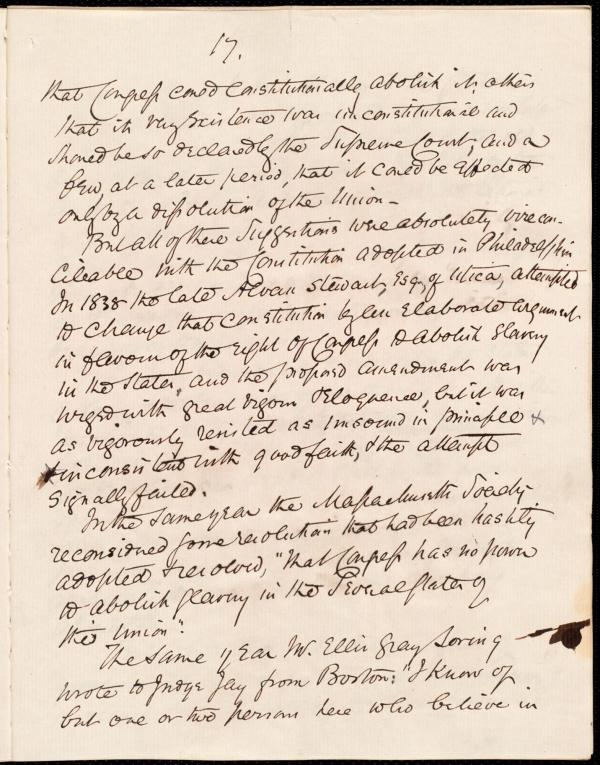 17.
that Congress could Constitutionally abolish it, others
that its very existence was unconstitutional and
should be so declared by the Supreme Court; and a
few, at a later period, that it could be effected
only by a dissolution of the Union -
But all of these suggestions were absolutely irrecon-
cileable with the Constitution adopted in Philadelphia
In 1838 the late Alvan Stewart, Esq, of Utica, attempted
to change that Constitution by an elaborate argument
in favour of the right of Congress to abolish slavery
in the States, and the proposed amendment was
urged with great vigour & eloquence, but it was
as vigorously resisted as unsound in principle &
inconsistent with good faith, & the attempt
signally failed.
In the same year the Massachusetts Society
reconsidered some resolution that had been hastily
adopted & resolved, "That Congress has no power
to abolish slavery in the Several States of
this Union".
The same year Mr. Ellis Gray Loring
wrote to Judge Jay from Boston: "I know of
but one or two persons here who believe in